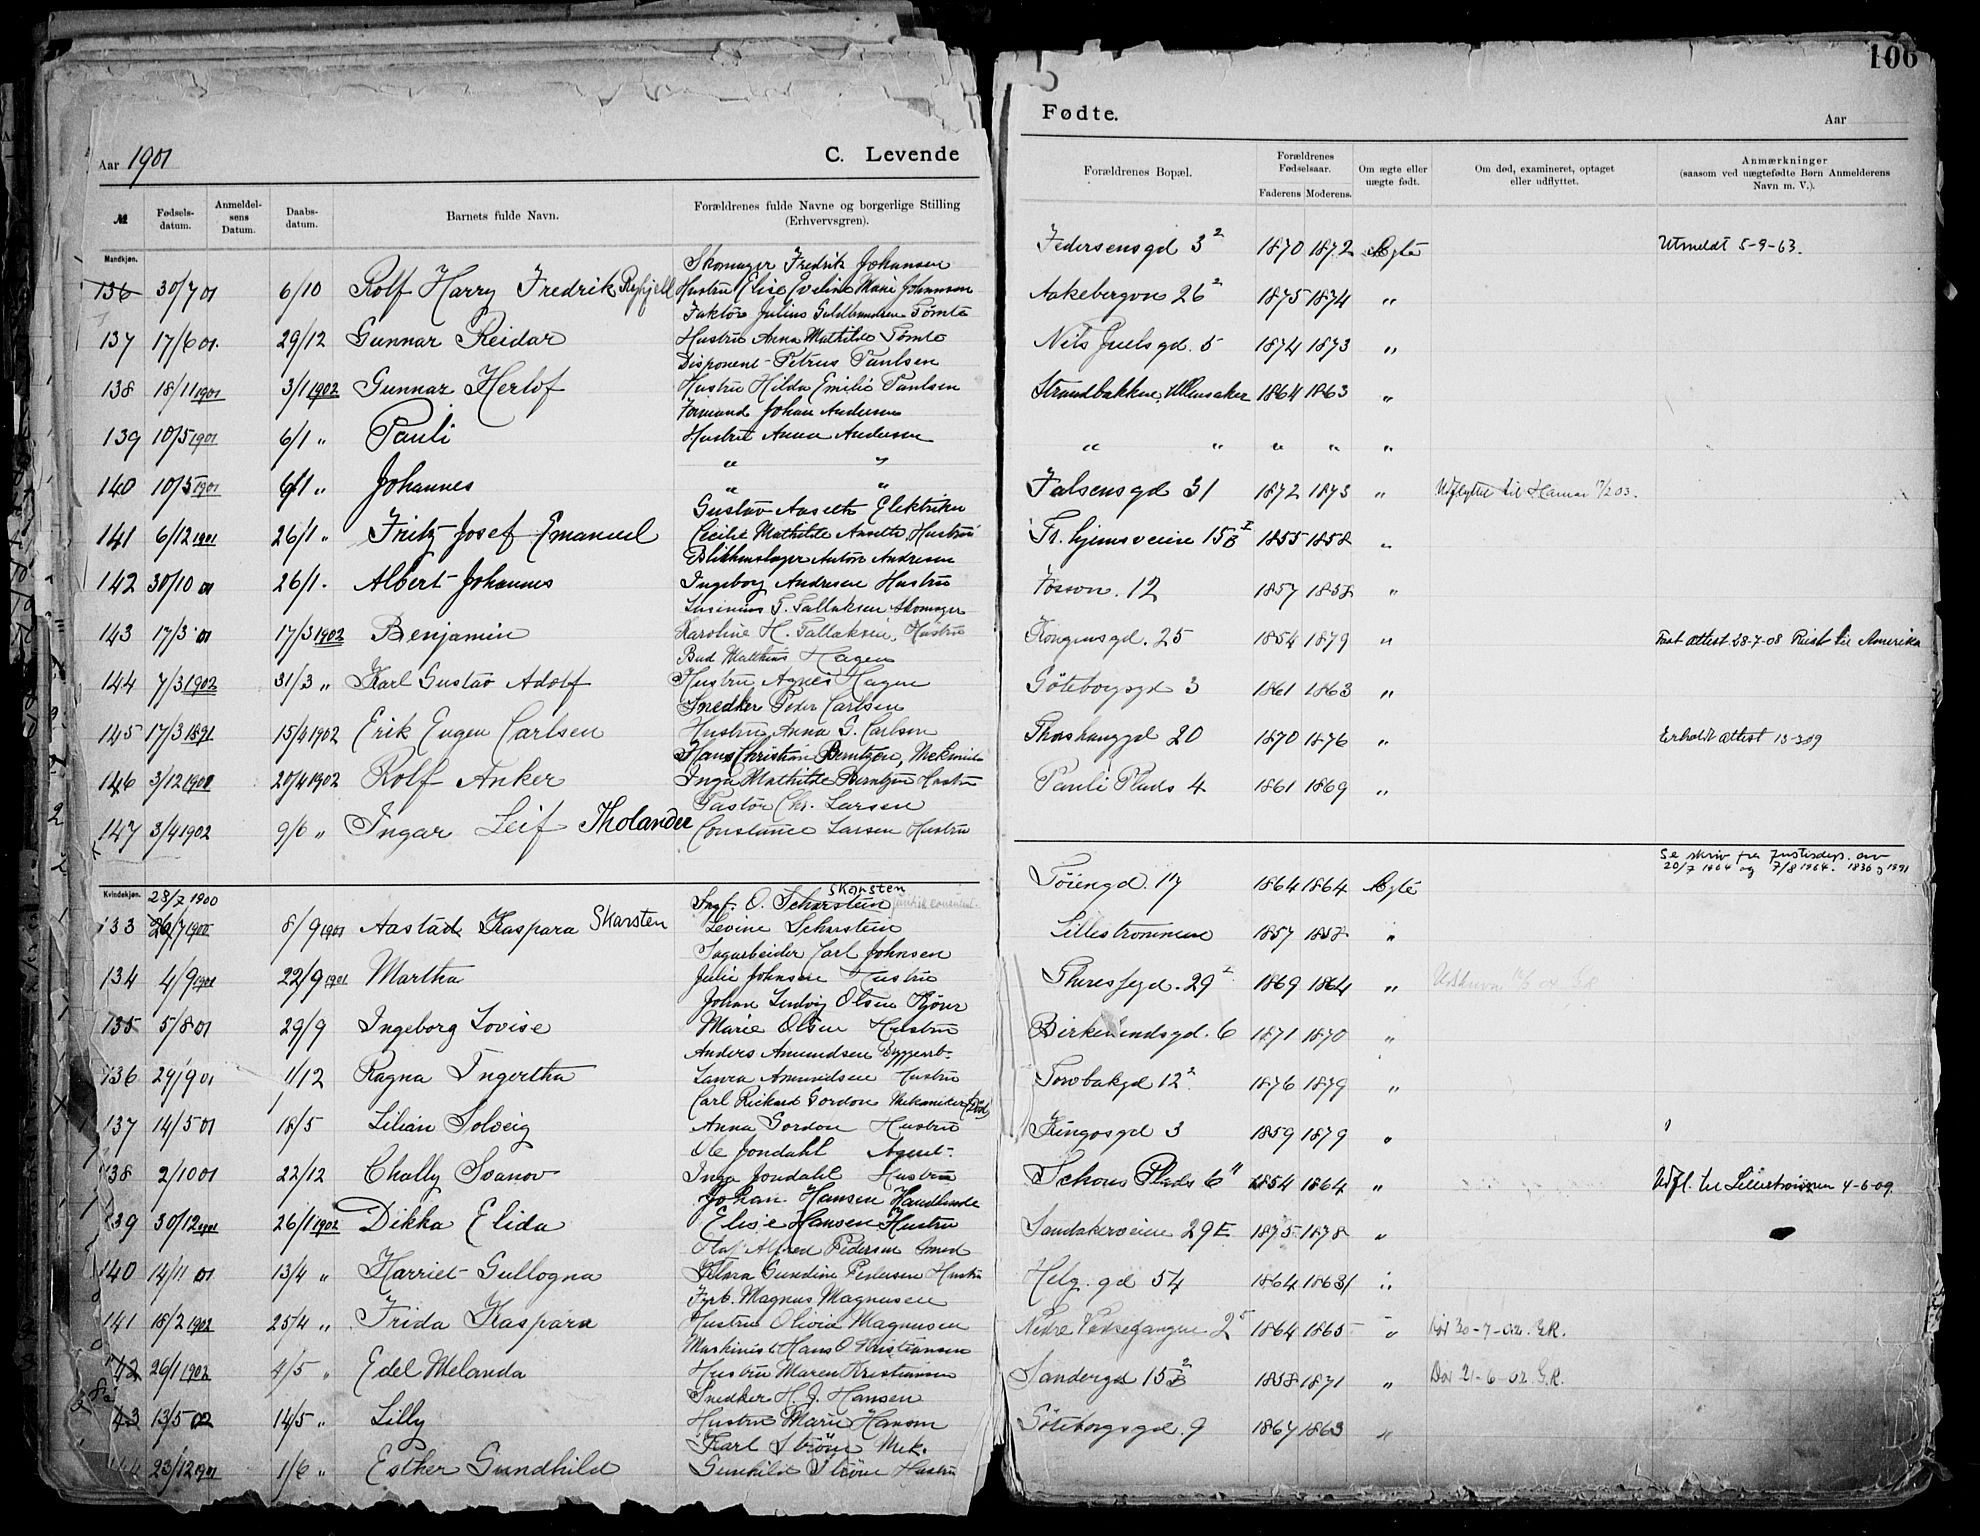 106
Aar 1901
C. Levende
Fødte.
Aar
№
Fødsels-
datum.
Anmeldel-
sens
Datum.
Daabs-
datum.
Barnets fulde Navn.
Forældrenes fulde Navne og borgerlige Stilling
(Erhvervsgren).
Forældrenes Bopæl.
Forældrenes
Fødselsaar.
Faderens Moderens.
Om ægte eller
uægte født.
Om død, examineret, optaget
eller udflyttet.
Anmærkninger
(saasom ved uægtefødte Børn Anmelderens
Navn m. V.).
Mandkjøn.
Skomager Fredrik Johansen
136 30/7 01 6/10 Rolf Harry Fredrik Hustru Elise Eveline Marie Johannsen
Pedersensgd 3² 1870 1872 Ægte Utmeldt 5-9-63.
Faktor Julius Guldbrandsen Tømte
137 17/6 01. 29/12 Gunnar Reidar Hustru Anna Mathilde Tømte
Aakebergvn 26² 1875 1874 "
Disponent Petrus Paulsen
138 18/11 1901 3/1 1902 Gunnar Herlof Hustru Hilda Emilie Paulsen
Nils Juelsgd. 5 1874 1873 "
Formand Johan Andersen
139 10/5 1901 6/1 " Pauli Hustru Anna Andersen
Strandbakken, Ullensaker 1864 1863 "
" "
140 10/5 1901 6/1 " Johannes " "
" " " " "
Gustav Aaseth Elektriker
141 6/12 1901 26/1 " Fritz Josef Emanuel Cecilie Mathilde Aaseth Hustru
Falsensgd 31 1872 1873 " Udflyttet til Hamar 17/2 03.
Blikkenslager Anton Andresen
142 30/10 01 26/1 . Albert Johannes Ingeborg Andresen Hustru
Tr.hjemsveien 15B 1855 1858 "
T. Tallaksen Skomager
143 17/3 01 17/3 1902 Benjamin Karoline H. Tallaksen, Hustru
Fossvn. 12 1857 1858 "
Bud Matthias Hagen
144 7/3 1902 31/3 " Karl Gustav Adolf Hustru Agnes Hagen
Kongensgd. 25 1854 1879 " Faat attest 28-7-08 Reist til Amerika
Snedker Peder Carlsen
145 17/3 1891 15/4 1902 Erik Eugen Carlsen Hustru Anna G. Carlsen
Göteborggd 3 1861 1863 "
Hans Christian Berntzen, Mekanik
146 3/12 1900 20/4 1902 Rolf Anker Inga Mathilde Berntzen Hustru
20 1870 1876 " Erholdt attest 13-3-09
Pastor Chr. Larsen
147 3/4 1902 9/6 " Ingar Leif Tholander Constance Larsen Hustru
Pauli Plads 4 1861 1869 "
Kvindekjøn.
28/7 1900
Skarsten
Ingf. O. Scharstein
133 26/7 1900 8/9 1901 Aastad Kaspara Skarsten Levine Scharstein
Töiengd. 17 1864 1864 Ægte
Se skriv fra Justisdep. av
20/7 1964 og 7/8 1964.
Sagarbeider Carl Johnsen
134 4/9 1901 22/9 1901 Martha Julie Johnsen Hustru
Lillestrømmen 1857 1858 "
Johan Ludvig Olsen Kjører
135 5/8 01 29/9 Ingeborg Lovise Marie Olsen Hustru
Theresegd. 29 1869 1864 "
Anders Amundsen Byggearb.
136 29/9 01 1/12 Ragna Ingertha Laura Amundsen Hustru
Birkelundsgd. 6 1871 1870 "
Carl Rickard Gordon Mekaniker
137 14/5 01 18/5 Lilian Solveig Anna Gordon Hustru
Torvbakgd 12² 1876 1879 "
Ole Jondahl Agent
138 2/10 01 22/12 Chally Svanov Inga Jondahl Hustru
Kingosgd 3 1859 1879 "
Johan Hansen Handlende
139 30/12 1901 26/1 1902 Dikka Elida Elise Hansen Hustru
Schous Plads 6 1854 1864 " Udfl. til Lillestrømmen 4-6-09.
Olaf Alfred Pedersen Smed
140 14/11 01 13/4 " Harriet Gullogna Klara Gundine Pedersen Hustru
Sandakerveien 29E 1875 1878 "
Fyrb. Magnus Magnusen
141 18/2 1902 25/4 " Frida Kaspara Hustru Olivia Magnusen
Helg. gd 54 1864 1863 "
Maskinist Hans O Kristiansen
142 26/1 1902 4/5 " Edel Melanda Hustru Maren Kristiansen
Nedre Fossegangen 2 1864 1865 " Död 30-7-02. GR.
Snedker H. J. Hansen
143 13/5 02 14/5 " Lilly Hustru Marie Hansen
Sandergd 15 1858 1871 " Död 21-6-02 GR.
Karl Strøm Mek.
144 23/12 1901 1/6 " Esther Gundhild Gunhild Strøm Hustru
Göteborgsgd. 9 1867 1863 "